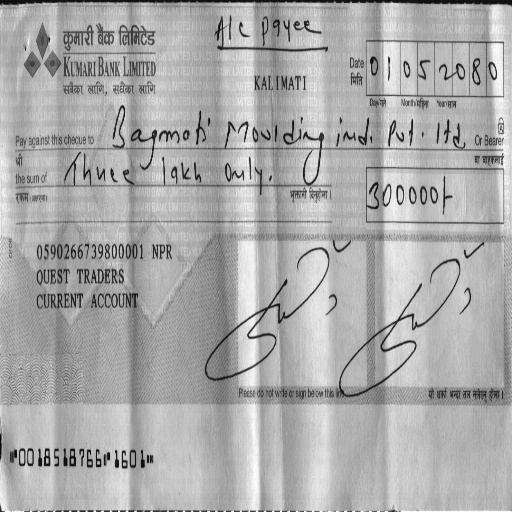 A/c payee
कुमारी बैंक लिमिटेड
KUMARI BANK LIMITED
सबैका लागि, सधैंका लागि
KALIMATI
Date 01052080
मिति
Day/गते Month/महिना Year/साल
Pay against this cheque to Bagmati Moulding ind. Pvt. ltd Or Bearer
श्री वा वाहकलाई
the sum of Three lakh only.
रकम (अक्षरमा) भुक्तानी दिनुहोला ।
300000/-
0590266739800001 NPR
QUEST TRADERS
CURRENT ACCOUNT
Please do not write or sign below this line
यो धर्का भन्दा तल नलेख्नु होला ।
⑈0018518766⑈1601⑈